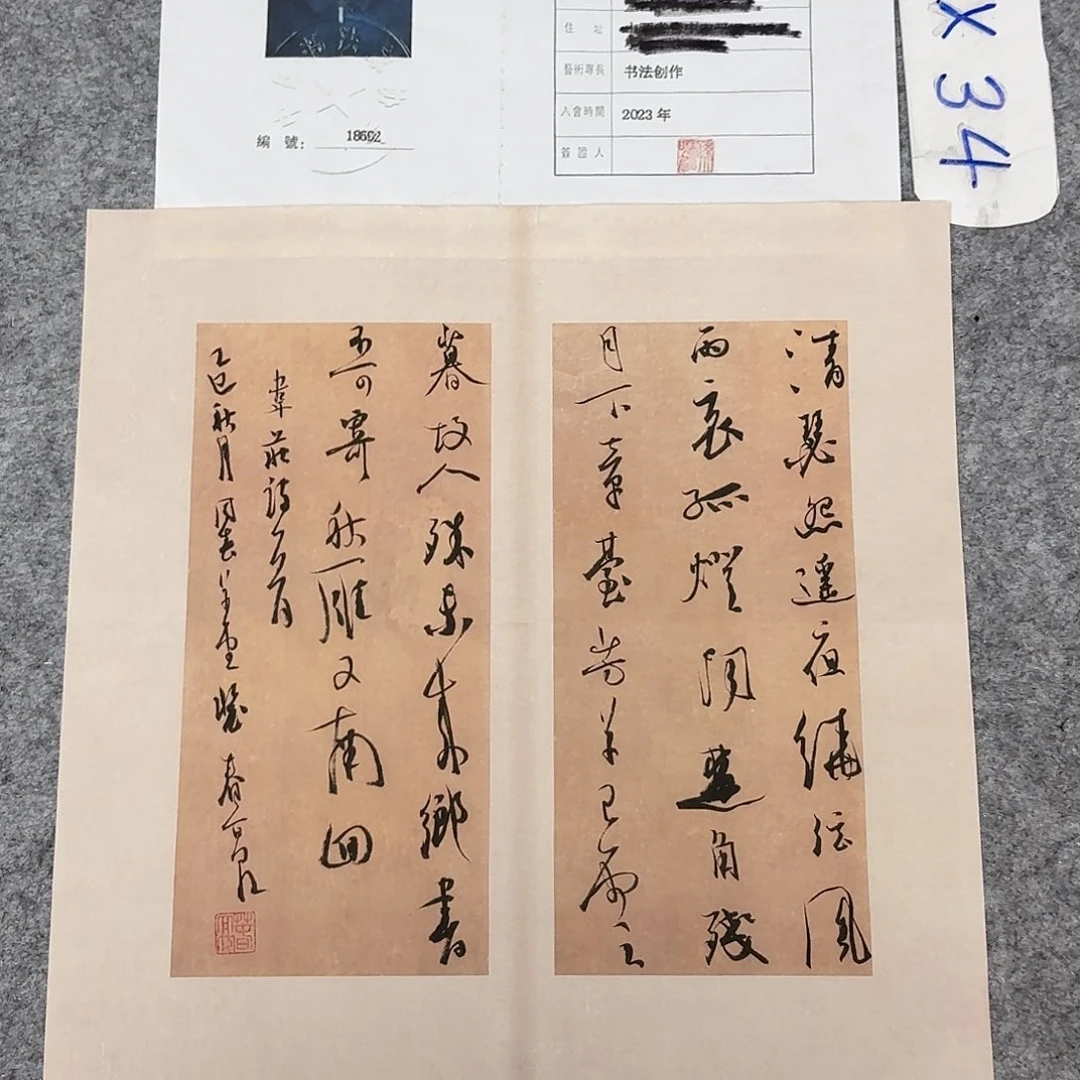 住 址
藝術專長 书法创作
入會時間 2023 年
簽證人
編 號: 18692
X 34
清瑟怨遥夜繞弦風
雨哀孤燈聞楚角殘
月下章臺芳草已
暮故人殊未來鄉書
不可寄秋雁又南迴
韋莊詩一首
乙巳秋月